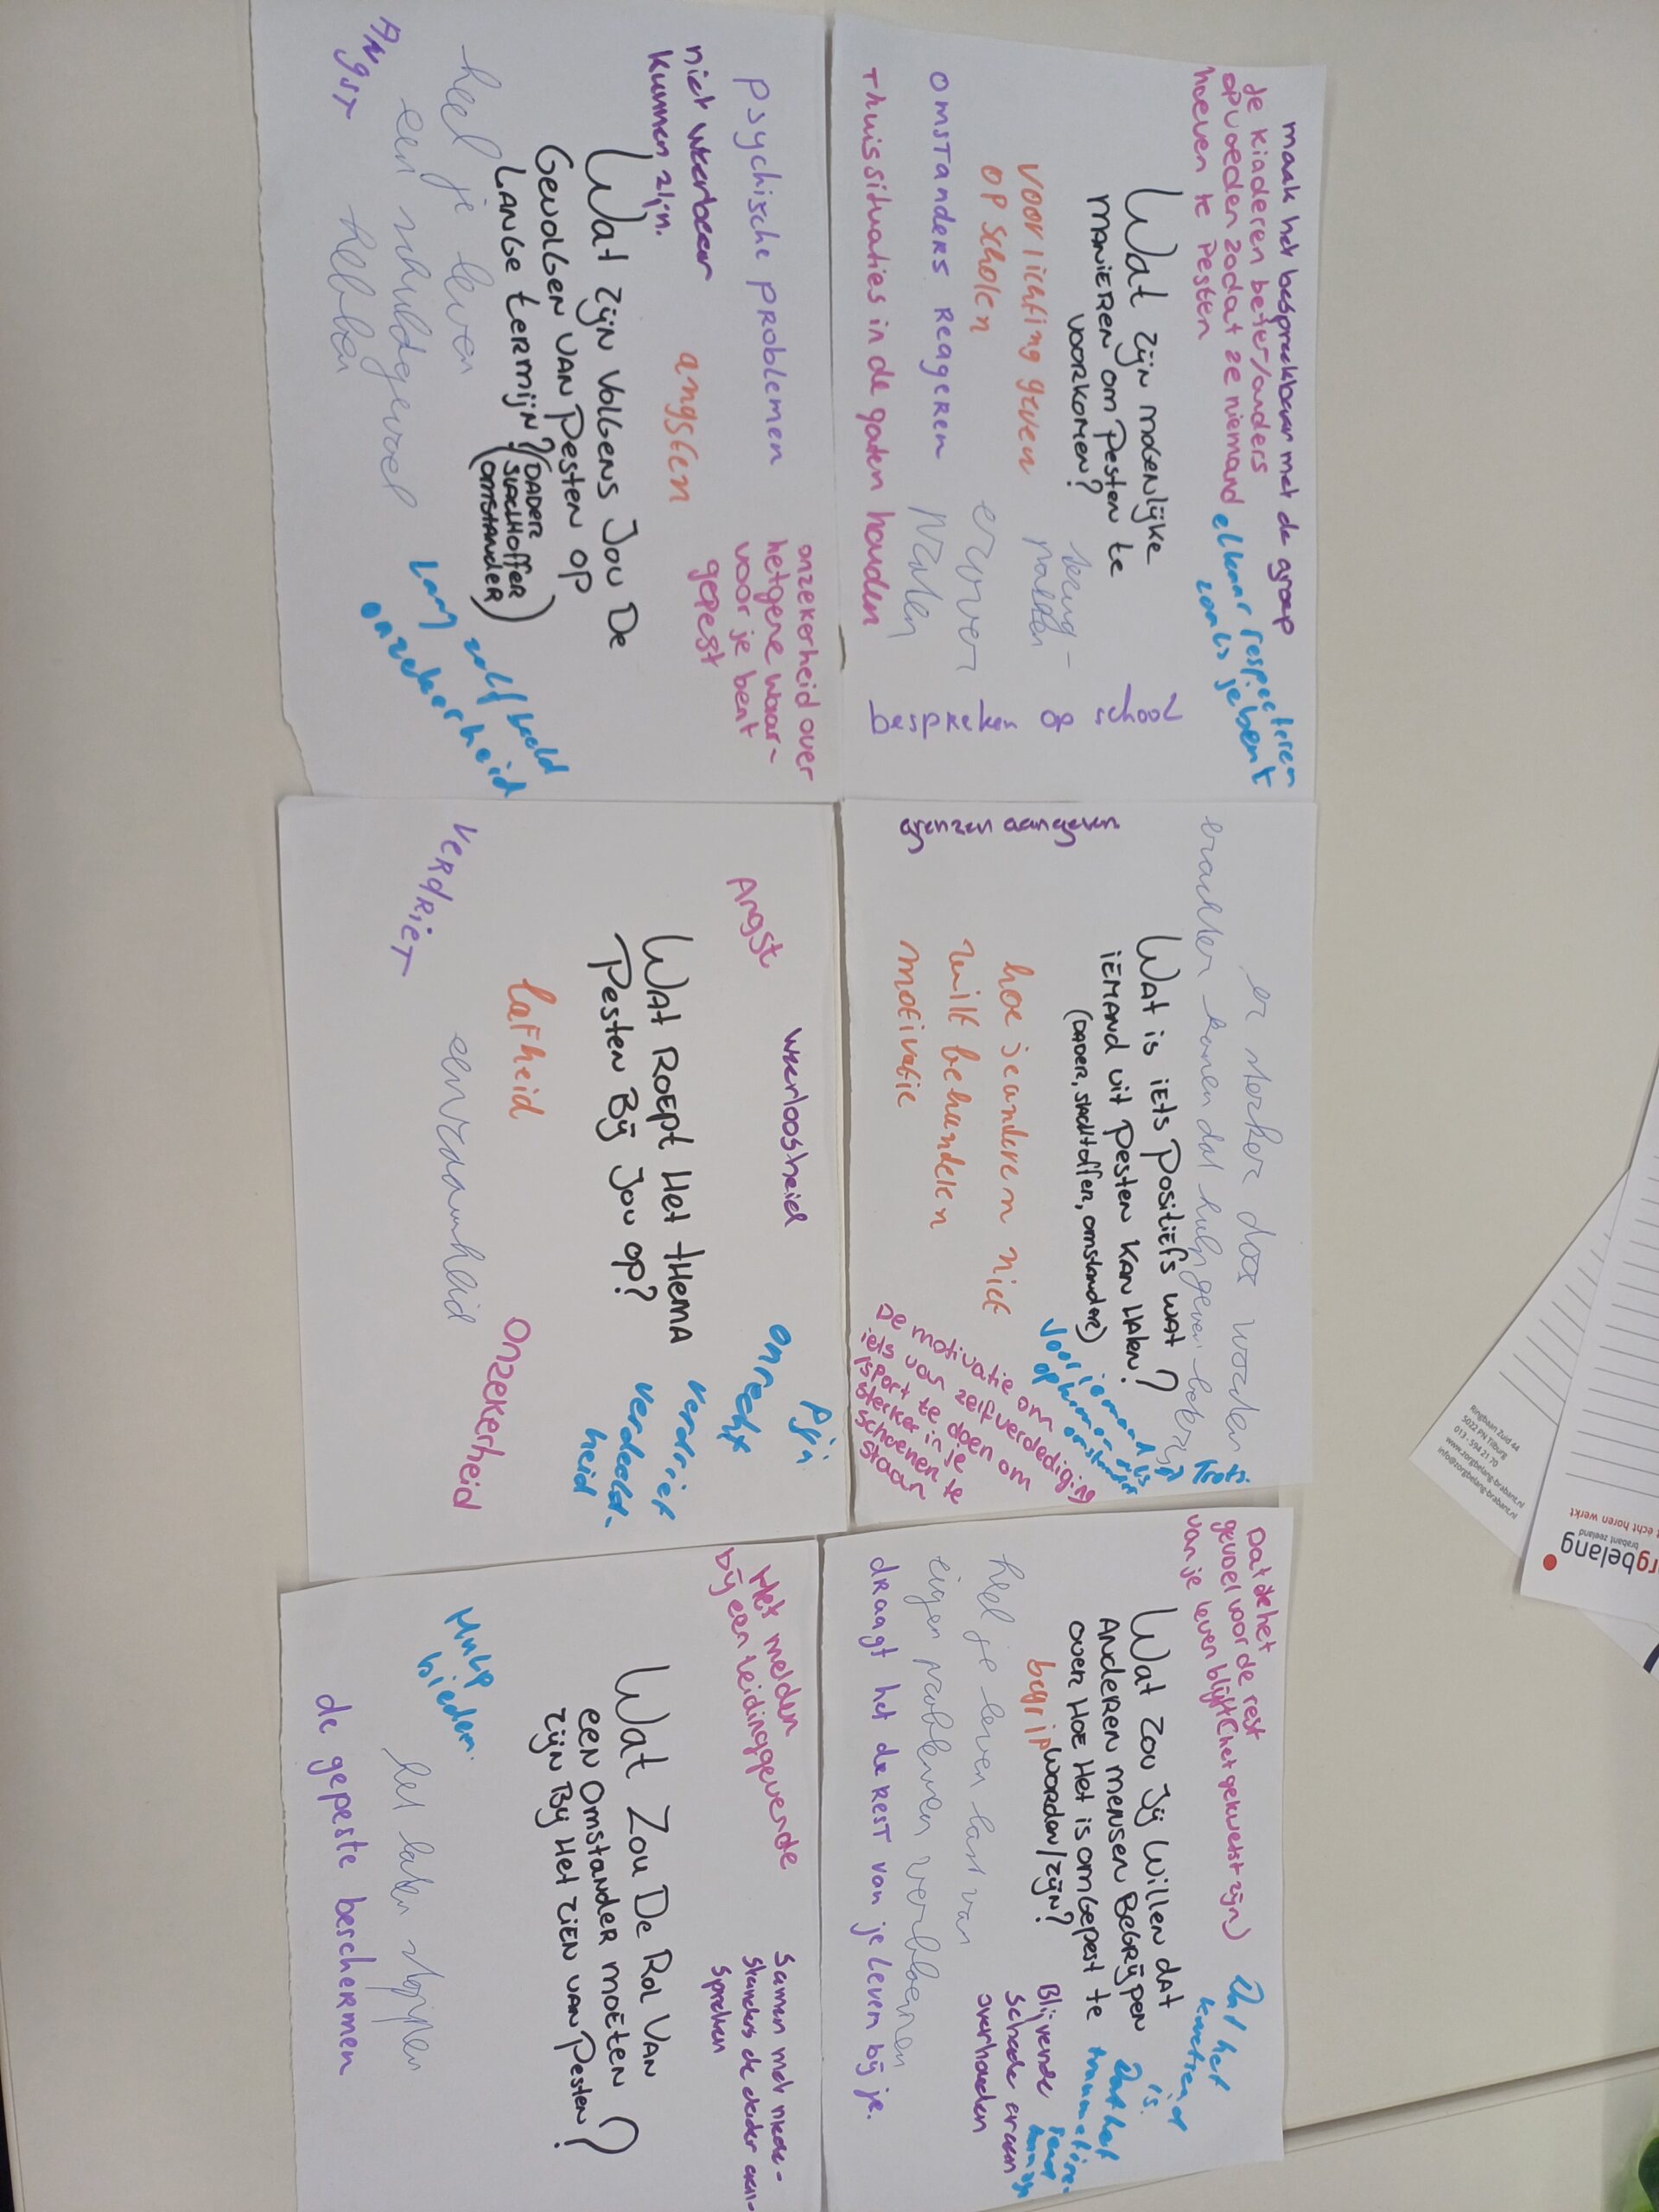 maak het bespreekbaar met de groep
de kinderen beter/anders
opvoeden zodat ze niemand
hoeven te pesten
elkaar respecteren
zoals je bent
Wat zijn mogenlijke
manieren om pesten te
voorkomen?
voorlichting geven
op scholen
omstanders reageren
erover
praten
Thuissituaties in de gaten houden
bespreken op school
er sterker door worden
erachter komen dat hulp geven
Wat is iets positiefs wat
iemand uit pesten kan halen?
(dader, slachtoffer, omstander)
hoe je anderen niet
wilt behandelen
motivatie
grenzen aangeven
De motivatie om
iets van zelfverdediging
sport te doen om
sterker in je
schoenen te
staan
Dat de het
gevoel voor de rest
van je leven blijft (het gekwetst zijn)
Dat het
kwetsend
is.
Wat zou jij willen dat
anderen mensen begrijpen
over hoe het is om gepest te
worden/zijn?
begrip
Dat het
Blijvende
schade eraan
overhouden
heel je leven last van
eigen problemen verbloemen
draagt het de rest van je leven bij je.
psychische problemen
niet weerbaar
kunnen zijn.
angsten
onzekerheid over
hetgene waar-
voor je bent
gepest
Wat zijn volgens jou de
gevolgen van pesten op
lange termijn?
(dader
slachtoffer
omstander)
heel je leven
een schuldgevoel
hebben
Angst
Laag zelfbeeld
onzekerheid
Angst
weerloosheid
onrecht
Pijn
verdriet
verdeeld-
heid
Wat roept het thema
pesten bij jou op?
lafheid
eenzaamheid
onzekerheid
Verdriet
Het melden
bij een leidinggevende
Samen met mede-
standers de dader aan-
spreken
Wat zou de rol van
een omstander moeten
zijn bij het zien van pesten?
Hulp
bieden.
het laten stoppen
de gepeste beschermen
Ringbaan Zuid 44
5022 PN Tilburg
013 - 594 21 70
www.zorgbelang-brabant.nl
info@zorgbelang-brabant.nl
rgbelang
brabant zeeland
echt horen werkt